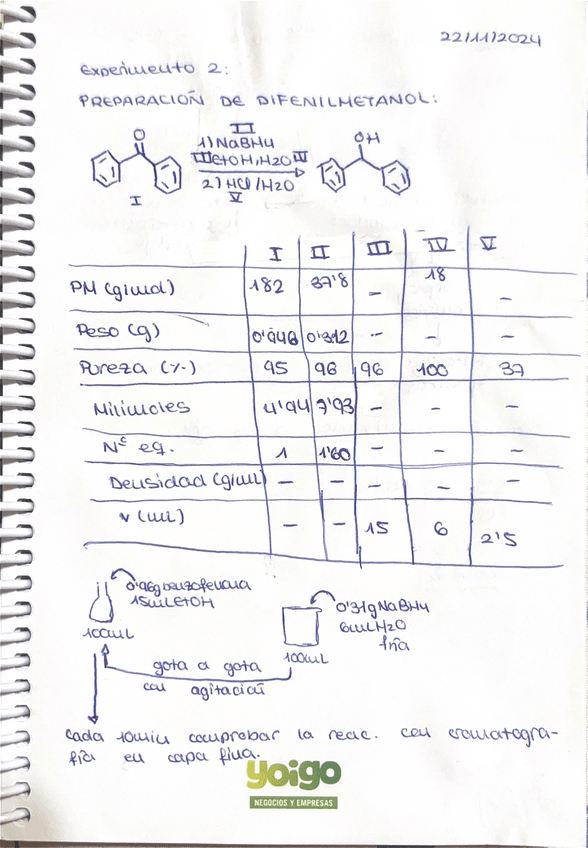 22/11/2024
Experimento 2:
PREPARACIÓN DE DIFENILMETANOL:
II
1) NaBH4
III EtOH, H2O IV
2) HCl/H2O
V
O
I
OH
I II III IV V
PM (g/mol) 182 37'8 - 18 -
Peso (g) 0'946 0'312 - - -
Pureza (%) 95 96 96 100 37
Milimoles 4'94 7'93 - - -
Nº eq. 1 1'60 - - -
Densidad (g/mL) - - - - -
v (mL) - - 15 6 2'5
0'96g benzofenona
15mL EtOH
100mL
0'31g NaBH4
6mL H2O
fría
100mL
gota a gota
con agitación
Cada 10min comprobar la reac. con cromatogra-
fía en capa fina.
yoigo
NEGOCIOS Y EMPRESAS